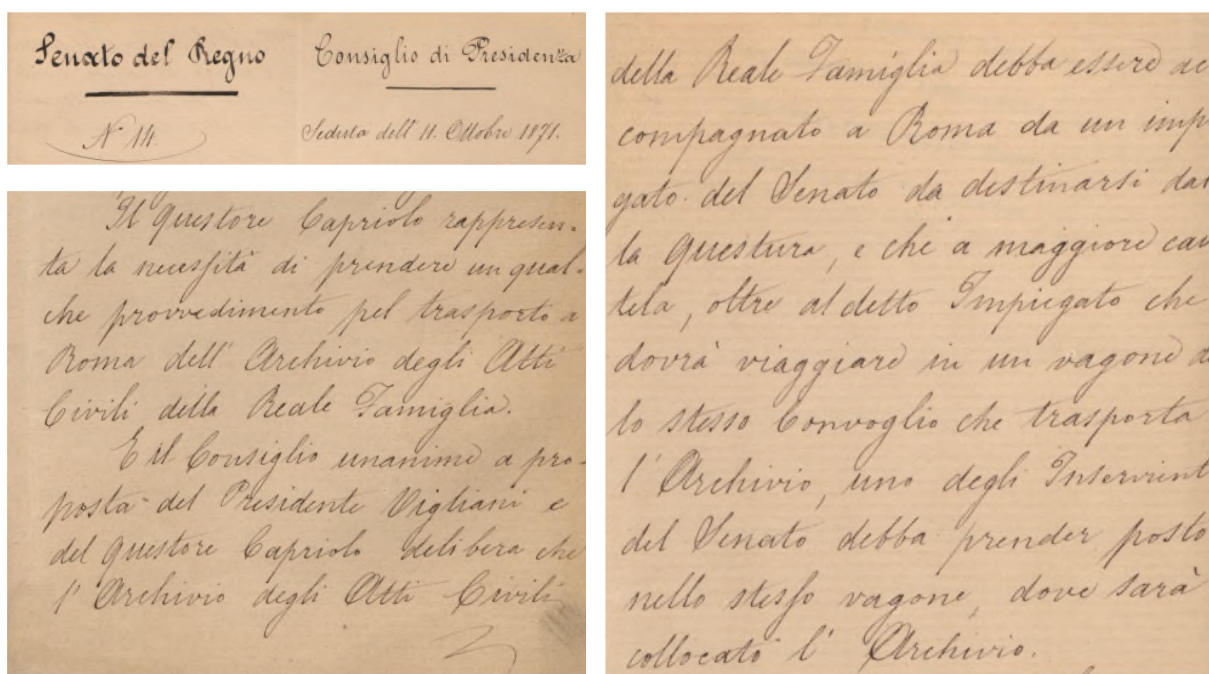 Senato del Regno
Consiglio di Presidenza
N° 14.
Seduta dell' 11. Ottobre 1871.
Il Questore Capriolo rappresen-
ta la necessità di prendere un qual-
che provvedimento pel trasporto a
Roma dell' Archivio degli Atti
Civili della Reale Famiglia.
E il Consiglio unanime a pro-
posta del Presidente Vigliani e
del Questore Capriolo delibera che
l' Archivio degli Atti Civili
della Reale Famiglia debba essere ac
compagnato a Roma da un impi
gato del Senato da destinarsi dal
la Questura, e che a maggiore cau
tela, oltre al detto Impiegato che
dovrà viaggiare in un vagone de
lo stesso Convoglio che trasporta
l' Archivio, uno degli Inservient
del Senato debba prender posto
nello stesso vagone, dove sarà
collocato l' Archivio.